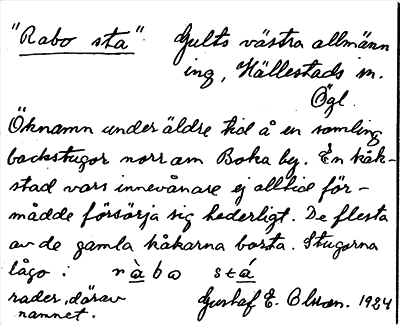 "Rabo sta" Gults västra allmänn
ing, Hällestads sn.
Ögl.
Öknamn under äldre tid å en samling
backstugor norr om Boha by. En kåk-
stad vars innevånare ej alltid för-
mådde försörja sig hederligt. De flesta
av de gamla kåkarna borta. Stugorna
lågo i nàbo stá
rader, därav Gustaf E. Olsson. 1924
namnet.